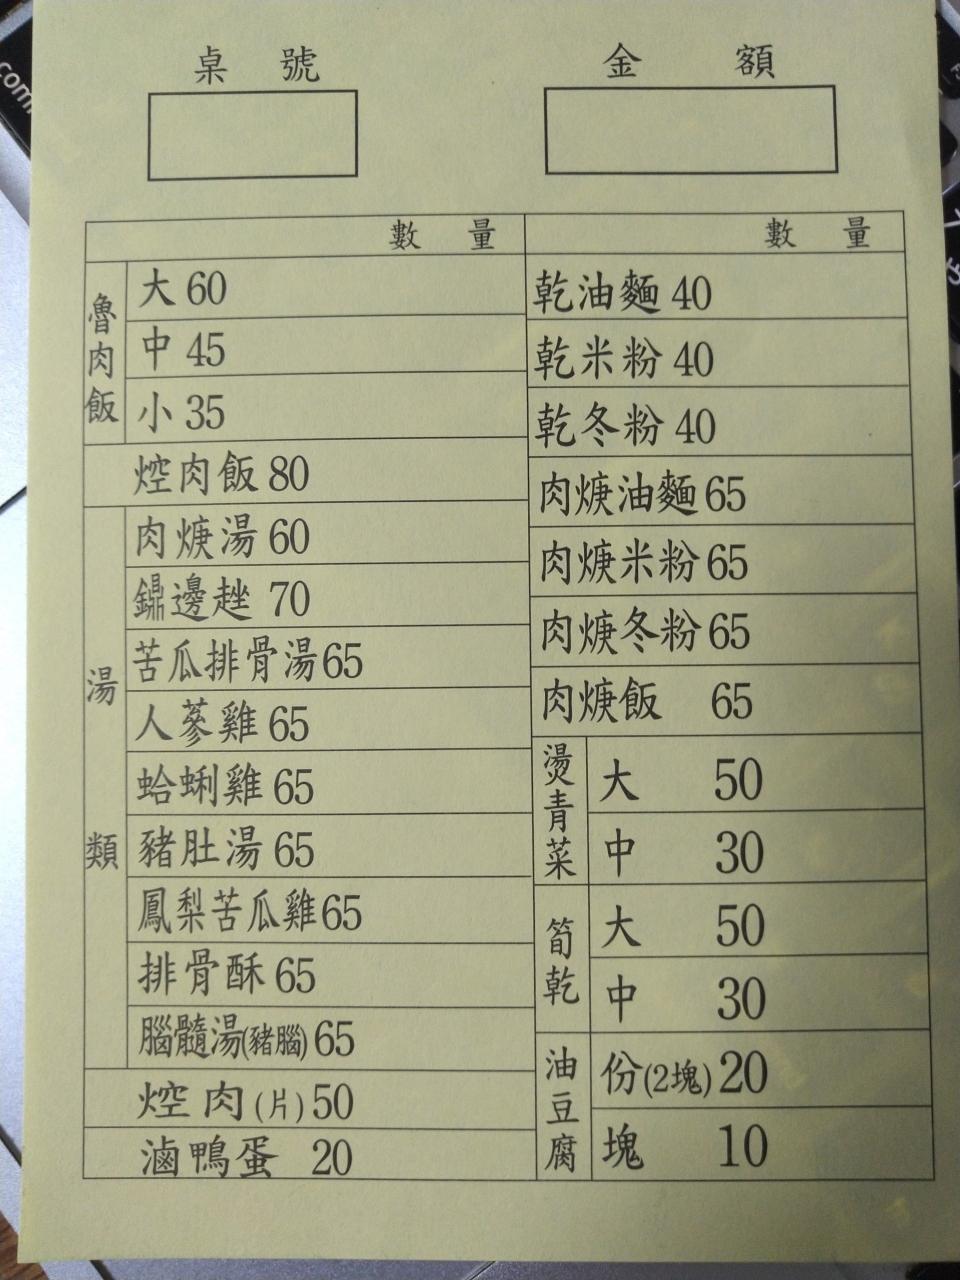 桌號
金額
數量
魯肉飯
大 60
中 45
小 35
焢肉飯 80
湯類
肉焿湯 60
鼎邊趖 70
苦瓜排骨湯 65
人蔘雞 65
蛤蜊雞 65
豬肚湯 65
鳳梨苦瓜雞 65
排骨酥 65
腦髓湯(豬腦) 65
焢肉(片) 50
滷鴨蛋 20
數量
乾油麵 40
乾米粉 40
乾冬粉 40
肉焿油麵 65
肉焿米粉 65
肉焿冬粉 65
肉焿飯 65
燙青菜
大 50
中 30
筍乾
大 50
中 30
油豆腐
份(2塊) 20
塊 10
com